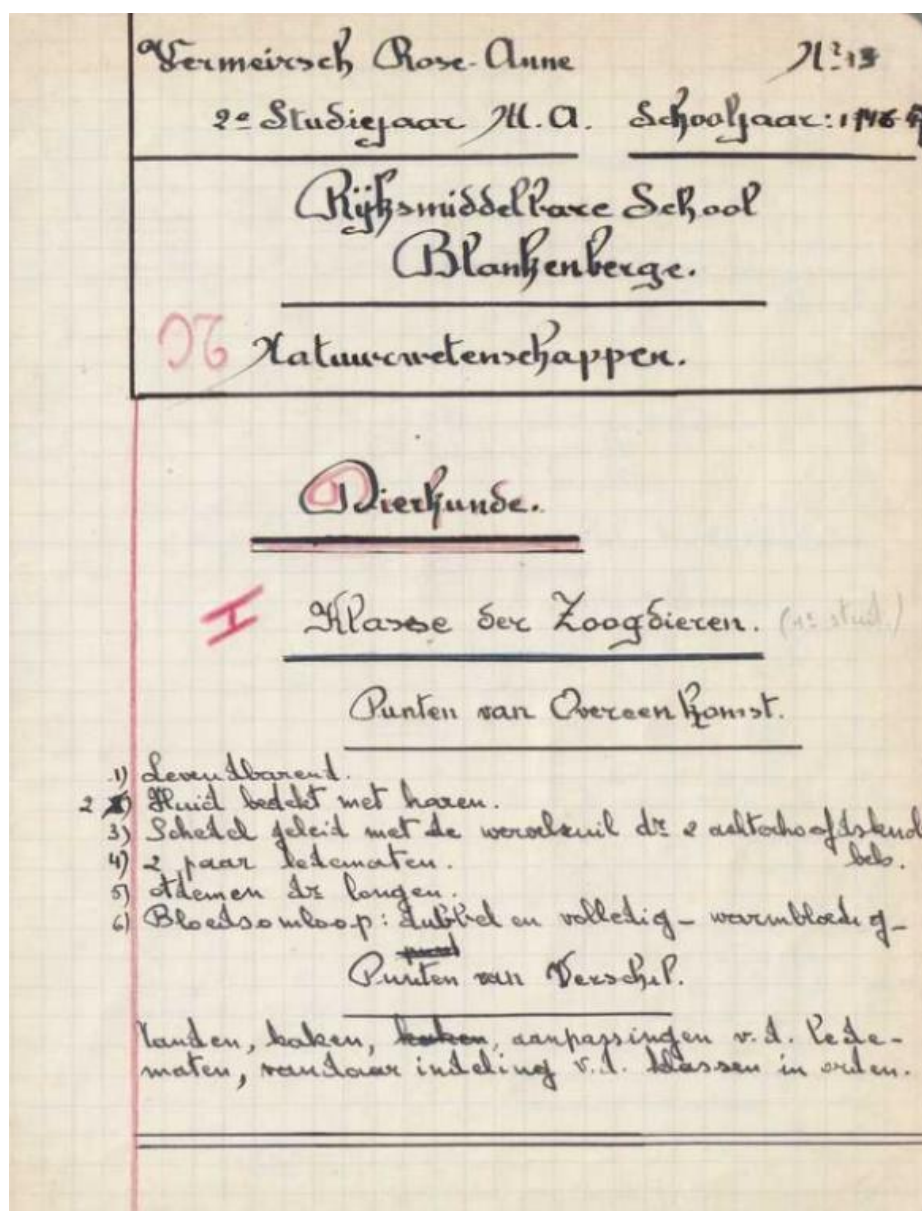 Vermeirsch Rose-Anne N° 13
2e Studiejaar M.A. Schooljaar: 1946-4
Rijksmiddelbare School
Blankenberge.
Natuurwetenschappen.
Dierkunde.
I Klasse der Zoogdieren. (1e stud.)
Punten van Overeenkomst.
1) Levendbarend.
2) Huid bedekt met haren.
3) Schedel geleid met de wervelzuil dr 2 achterhoofdsknob
bels.
4) 2 paar ledematen.
5) Ademen dr longen.
6) Bloedsomloop: dubbel en volledig - warmbloedig -
Punten van Verschil.
Tanden, kaken, kaken, aanpassingen v.d. lede-
maten, vandaar indeling v.d. klassen in orden.